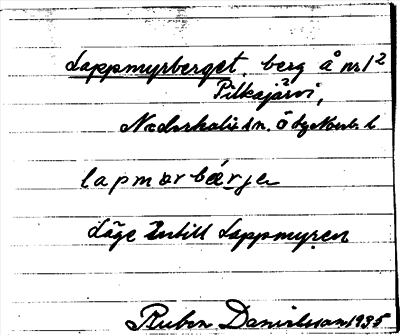 Lappmyrberget, berg å nr 1²
Pitkajärvi,
Nederkalix sn. Norrb. l
lapmơrbærje
Läge intill Lappmyren
Ruben Danielsson 1935